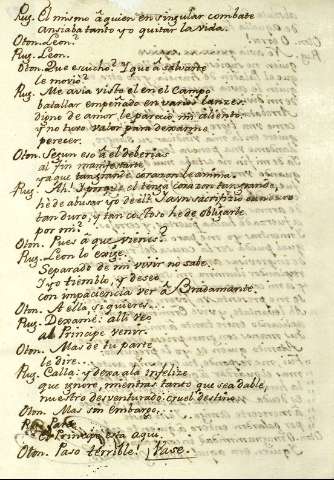 Rug. El mismo â quien en singular combate
Ansiaba tanto yo quitar la vida.
Oton. Leon?
Rug. Leon.
Oton. Que escucho? Y que â salvarte
le moviò?
Rug. Me avia visto el en el Campo
batallar empeñado en varios lanzes.
digno de amor le pareciò mi aliento.
y no tuvo valor para dexarme
perecer.
Oton. Segun eso â el deberias
al fin manifestarte,
ya que tan grande corazon le anima.
Rug. Ah! Y porque el tenga corazon tan grande,
he de abusar yo de el? Y a un sacrificio
tan duro, y tan costoso he de obligarle
por mi?
Oton. Pues â que vienes?
Rug. Leon lo exige.
Separado de mi vivir no sabe,
Y yo tiemblo, y deseo
con impaciencia ver â Bradamante.
Oton. A ella sigueres.
Rug. Dexame: alli veo
al Principe venir.
Oton. Mas de tu parte
le dire..
Rug. Calla: y dexa a la infelize
que ignore, mientras tanto que sea dable,
nuestro desventurado cruel destino.
Oton. Mas sin embargo..
Rug. Parte
el Principe esta aqui.
Oton. Paso terrible! Vase.